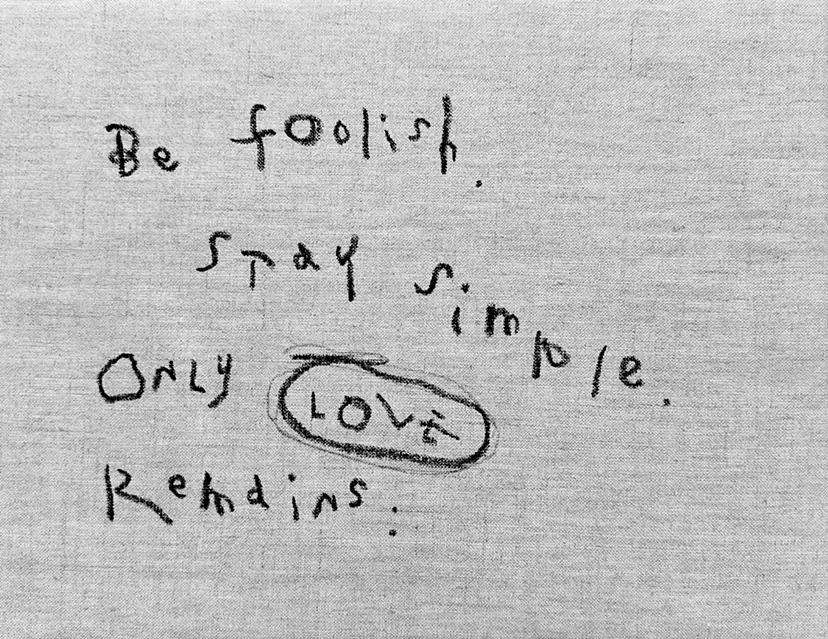 Be foolish.
Stay simple.
ONLY LOVE
Remains.